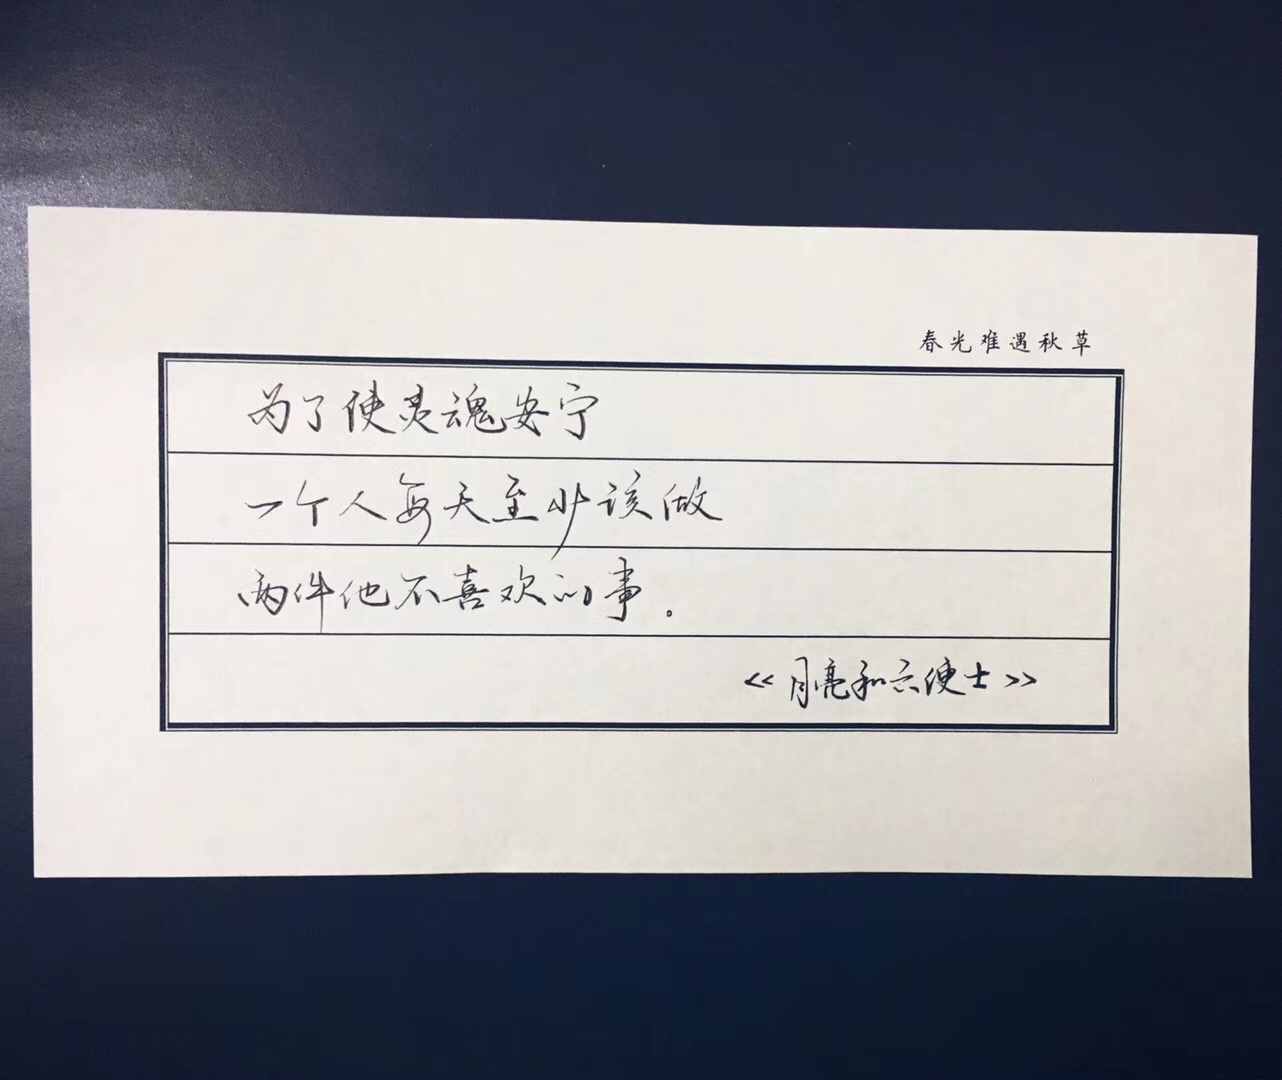 春光难遇秋草
为了使灵魂安宁
一个人每天至少该做
两件他不喜欢的事。
《月亮和六便士》